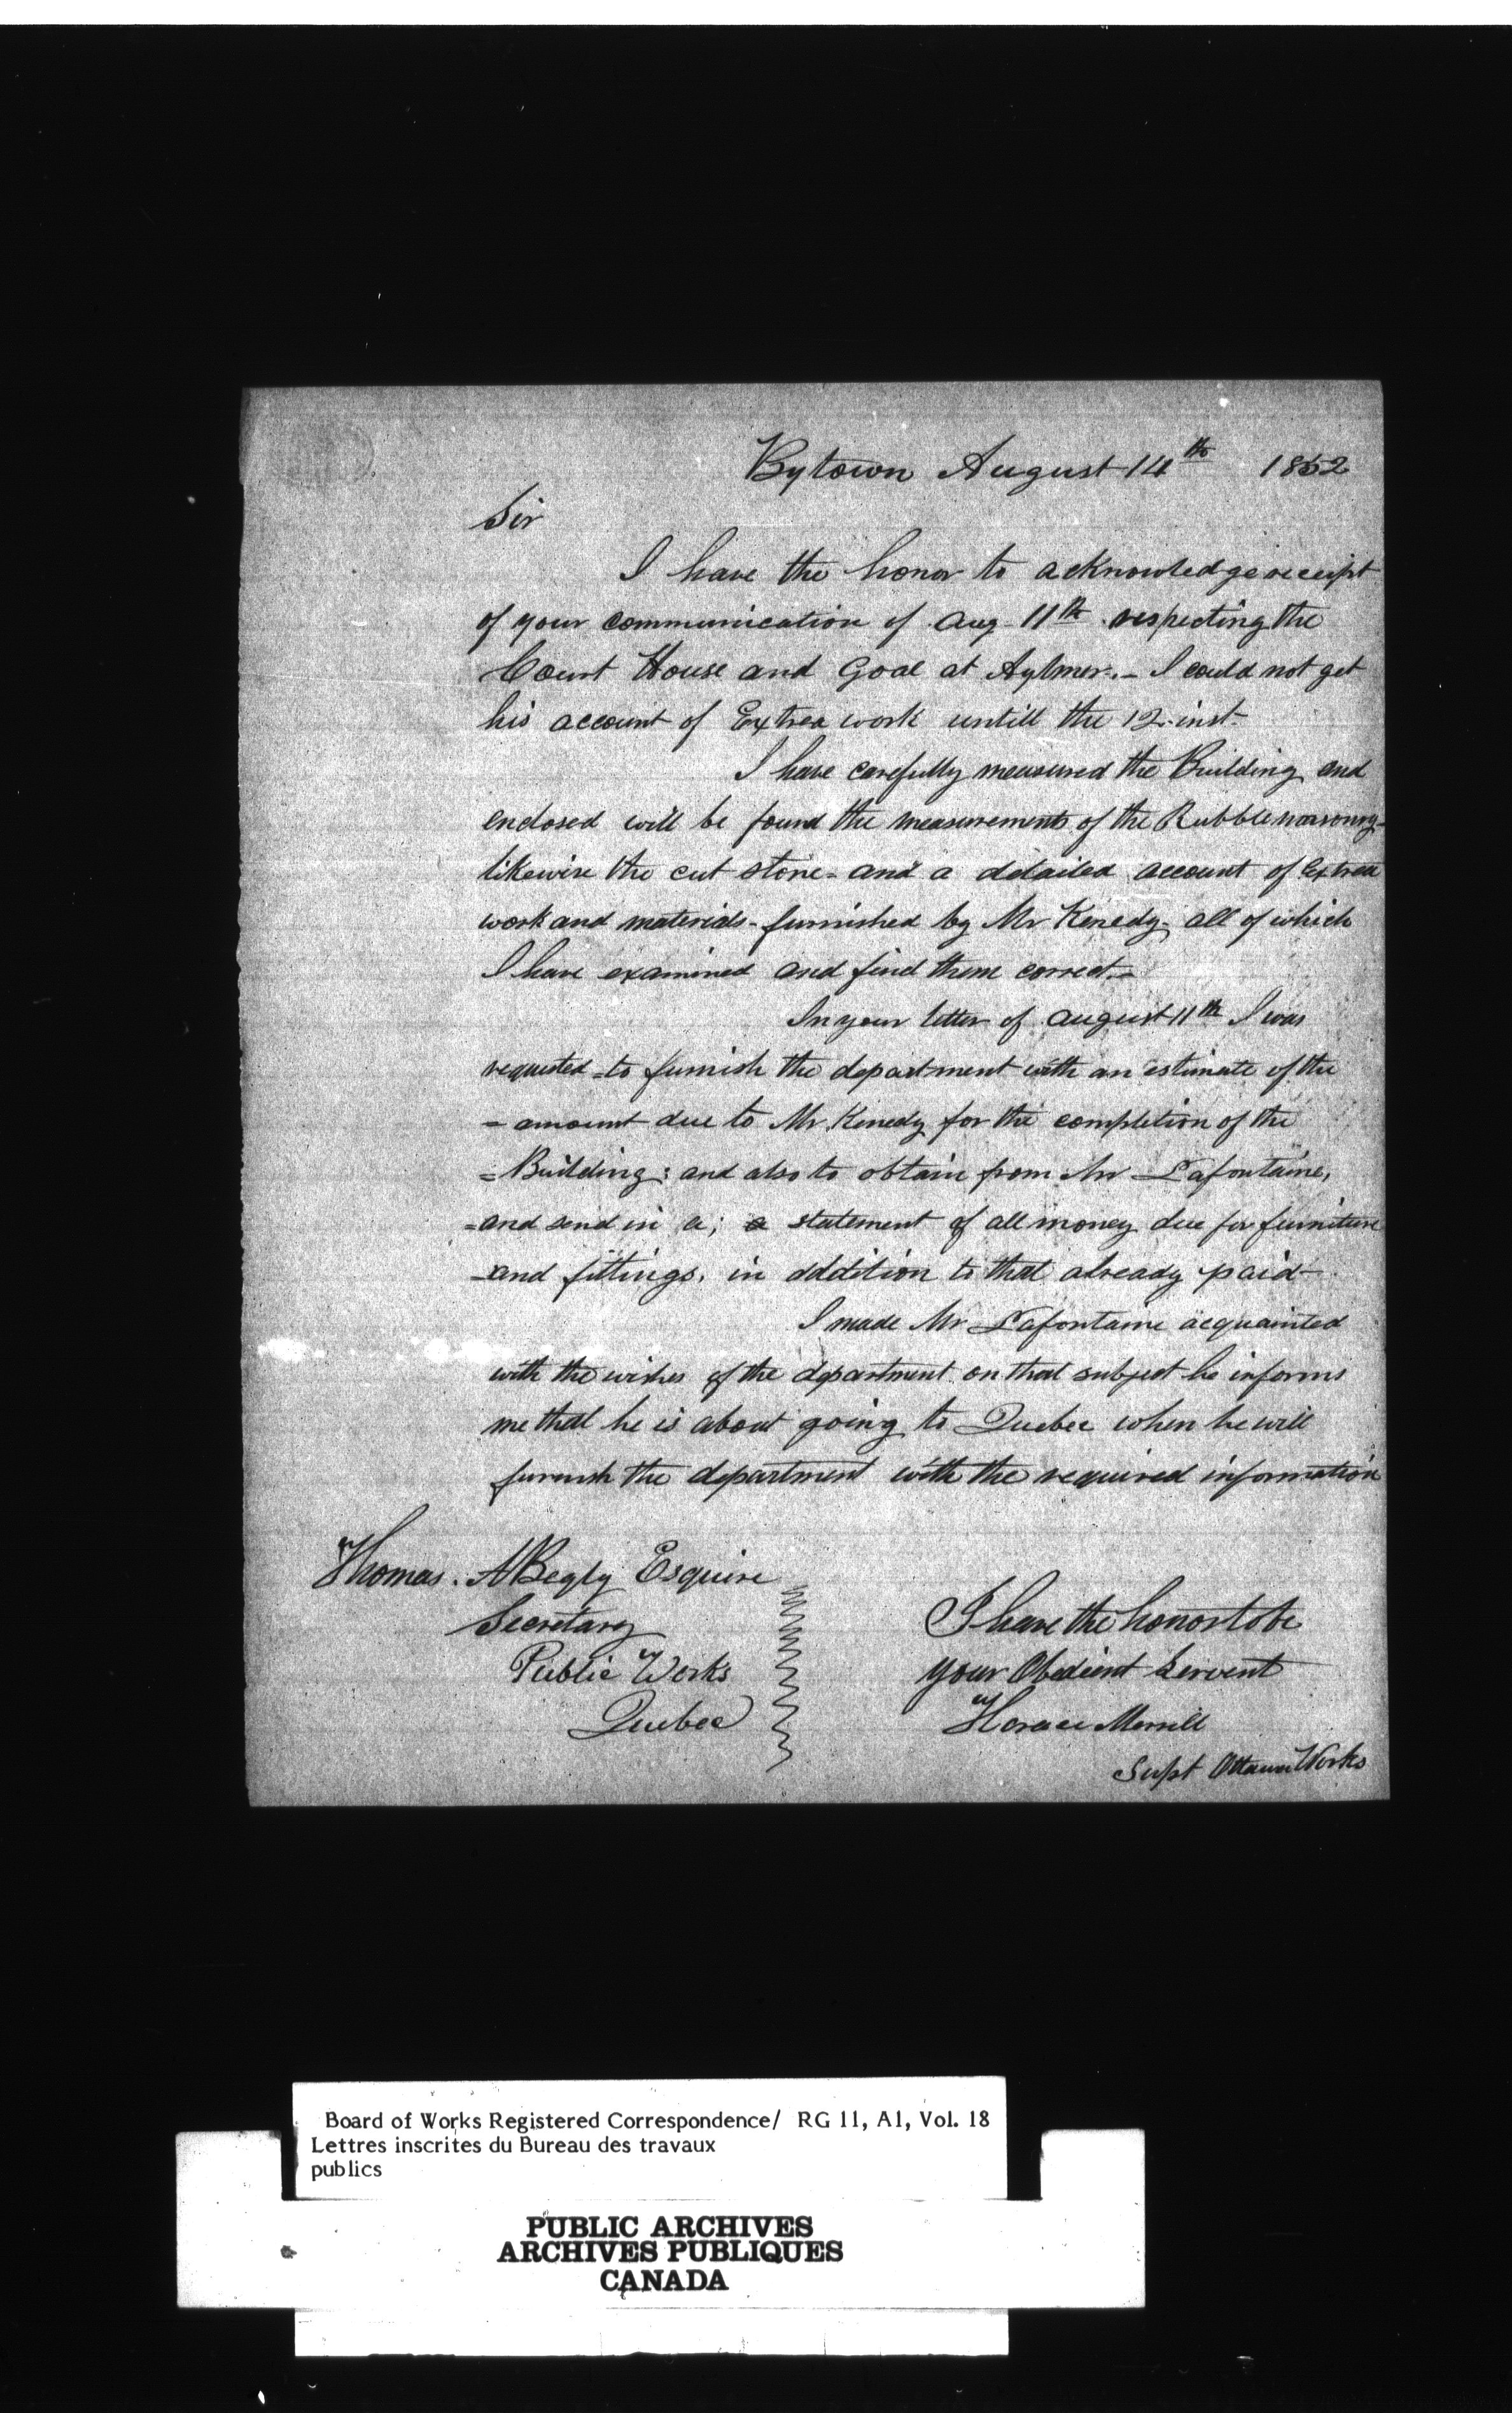 Bytown August 14th 1852
Sir
I have the honor to acknowledge receipt
of your communication of Aug 11th respecting the
Court House and Goal at Aylmer.- I could not get
his account of Extrea work untill the 12 inst-
I have carefully measured the Building and
enclosed will be found the measurements of the Rubble masonry-
likewise the cut stone- and a detailed account of Extrea
work and materials- furnished by Mr Kenedy- all of which
I have examined and find them correct.-
In your letter of august 11th I was
requested to furnish the department with an estimate of the
- amount due to Mr. Kenedy for the completion of the
= Building: and also to obtain from Mr Lafontaine,
= and send in a; a statement of all money due for furniture
- and fittings. in addition to that already paid-
I made Mr Lafontaine acquainted
with the wishes of the department on that subject he informs
me that he is about going to Quebec when he will
furnish the department with the required information
Thomas. A Begly Esquire
Secretary
Public Works
Quebec
I have the honor to be
your Obedient Servent
Horace Merrill
Supt Ottawa Works
Board of Works Registered Correspondence/ RG 11, A1, Vol. 18
Lettres inscrites du Bureau des travaux
publics
PUBLIC ARCHIVES
ARCHIVES PUBLIQUES
CANADA